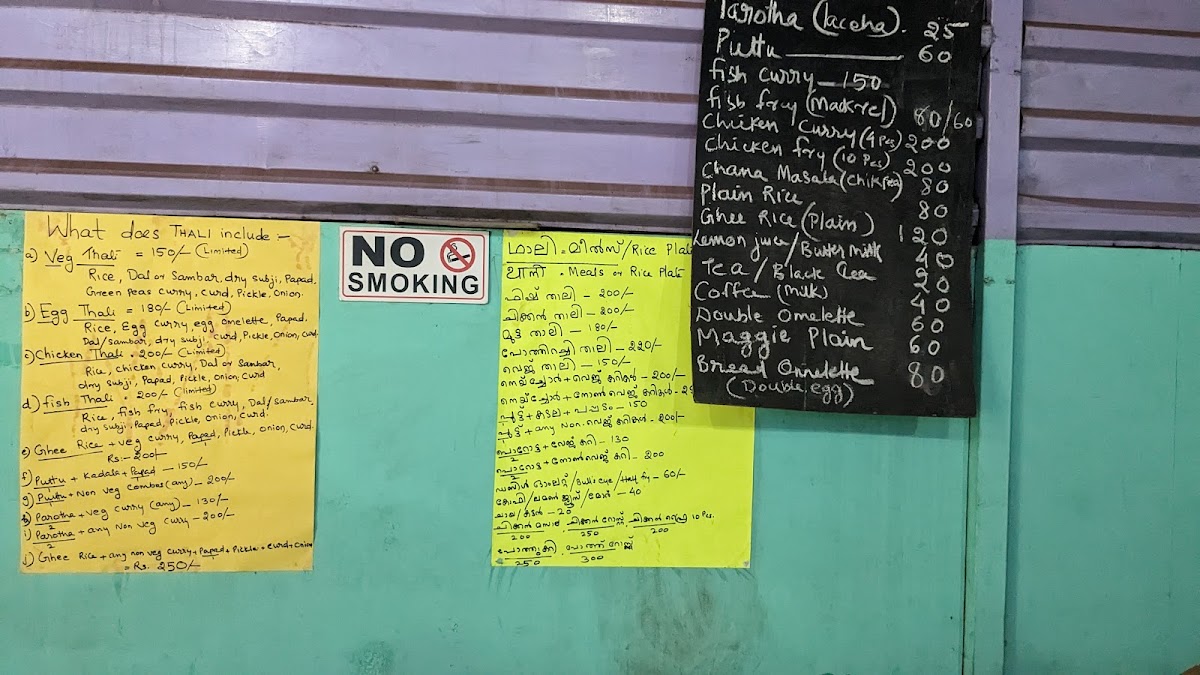 What does THALI include :-
a) Veg Thali = 150/- (Limited)
Rice, Dal or Sambar, dry subji, Papad.
Green peas curry, curd, Pickle, Onion.
b) Egg Thali = 180/- (Limited)
Rice, Egg curry, egg omelette, Papad.
Dal/sambar, dry subji. curd, Pickle, Onion, curd.
c) Chicken Thali. 200/- (Limited)
Rice, chicken curry, Dal or Sambar,
dry subji, Papad, Pickle, Onion, curd
d) fish Thali. 200/- (limited)
Rice, fish fry, fish curry, Dal/sambar,
dry subji. Papad, Pickle, Onion, curd.
e) Ghee Rice + veg curry, Papad, Pickle, Onion, curd.
Rs:- 200/-
f) Puttu + Kadala + Papad - 150/-
g) Puttu + Non veg combos (any) - 200/-
h) Parotha + veg curry (any) - 130/-
2
i) Parotha + any Non veg curry - 200/-
2
j) Ghee Rice + any non veg curry + Papad + Pickle + curd + Onion
= Rs. 250/-
NO
SMOKING
താലി - മീൽസ് / Rice Plat
थाली - Meals or Rice Plat
ഫിഷ് താലി - 200/-
ചിക്കൻ താലി - 200/-
മുട്ട താലി - 180/-
പോത്തിറച്ചി താലി - 220/-
വെജ് താലി - 150/-
നെയ്ച്ചോർ + വെജ് കറികൾ - 200/-
നെയ്ച്ചോർ + നോൺവെജ് കറികൾ - 25
പുട്ട് + കടല + പപ്പടം - 150
പുട്ട് + any Non. വെജ് കറികൾ - 200/-
പൊറോട്ട + വെജ് കറി - 130
2
പൊറോട്ട + നോൺവെജ് കറി - 200
2
ഡബിൾ ഓംലറ്റ് / Bulls eye / Half fry - 60/-
കോഫി / ലമൺ ജ്യൂസ് / മോര് - 40
ചായ / കട്ടൻ - 20
ചിക്കൻ മസാല, ചിക്കൻ റോസ്റ്റ്, ചിക്കൻ ഫ്രൈ 10 Pcs.
200 250 200
പോത്തുകറി, പോത്ത് റോസ്റ്റ്
250 300
Parotha (laccha). 25
Puttu 60
fish curry - 150
fish fray (Mackrel) 80/60
Chicken Curry (4 Pcs) 200
Chicken fry (10 Pcs) 200
Chana Masala (Chikpea) 80
Plain Rice 80
Ghee Rice (Plain) 120
Lemon juice / Butter milk 40
Tea / Black tea 20
Coffee (Milk) 40
Double Omelette 60
Maggie Plain 60
Bread Omelette 80
(Double egg)